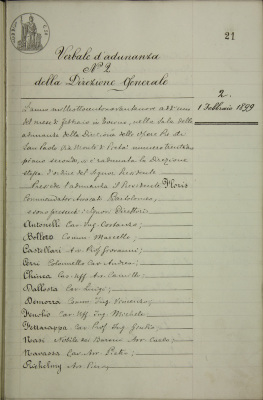 21
Verbale d'adunanza
N° 2
della Direzione Generale
2.
1 Febbraio 1899
L'anno milleottocentonovantanove addì uno
del mese di febbraio in Torino, nella sala delle
adunanze della Direzione delle Opere Pie di
San Paolo
piano secondo, si è radunata la Direzione
stessa d'ordine del Signor Presidente
Presiede l'adunanza il Presidente
Commendatore Avvocato Bartolomeo,
sono presenti i Signori Direttori:
Antonelli Cav. Ing. Costanzo;
Bollero Comm. Marcello;
Castellari Avv. Prof. Giovanni;
Cerri Colonnello Cav. Andrea;
Chiesa Cav. Uff. Avv. Camillo;
Dallosta Cav. Luigi;
Demorra Comm. Ing. Vincenzo;
Cav. Uff. Ing. Michele;
Cav. Prof. Ing. Giulio;
Reasi Nobile dei Baroni Avv. Carlo;
Navassa Cav. Avv. Pietro;
Avv.